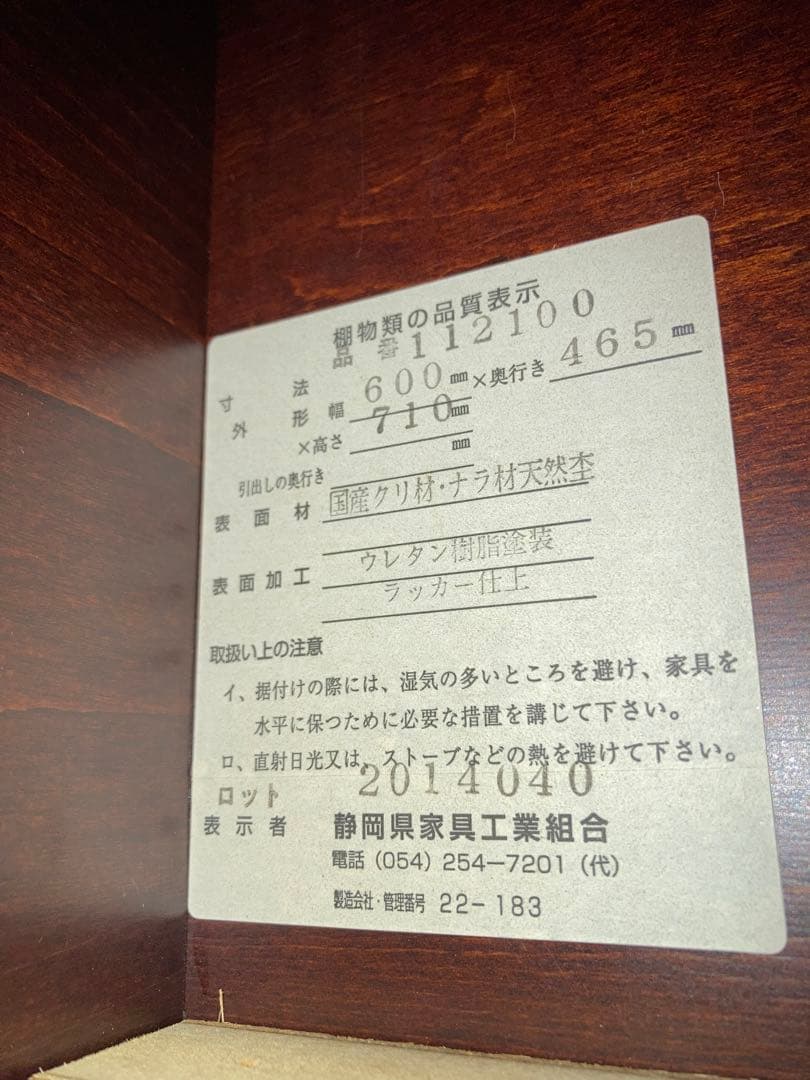 棚物類の品質表示
品 番 112100
寸 法
外 形 幅 600 mm ×奥行き 465 mm
×高さ 710 mm
引出しの奥行き mm
表 面 材 国産クリ材・ナラ材天然杢
表 面 加 工 ウレタン樹脂塗装
ラッカー仕上
取扱い上の注意
イ、据付けの際には、湿気の多いところを避け、家具を
水平に保つために必要な措置を講じて下さい。
ロ、直射日光又は、ストーブなどの熱を避けて下さい。
ロット 2014040
表 示 者 静岡県家具工業組合
電話 (054) 254-7201 (代)
製造会社・管理番号 22-183